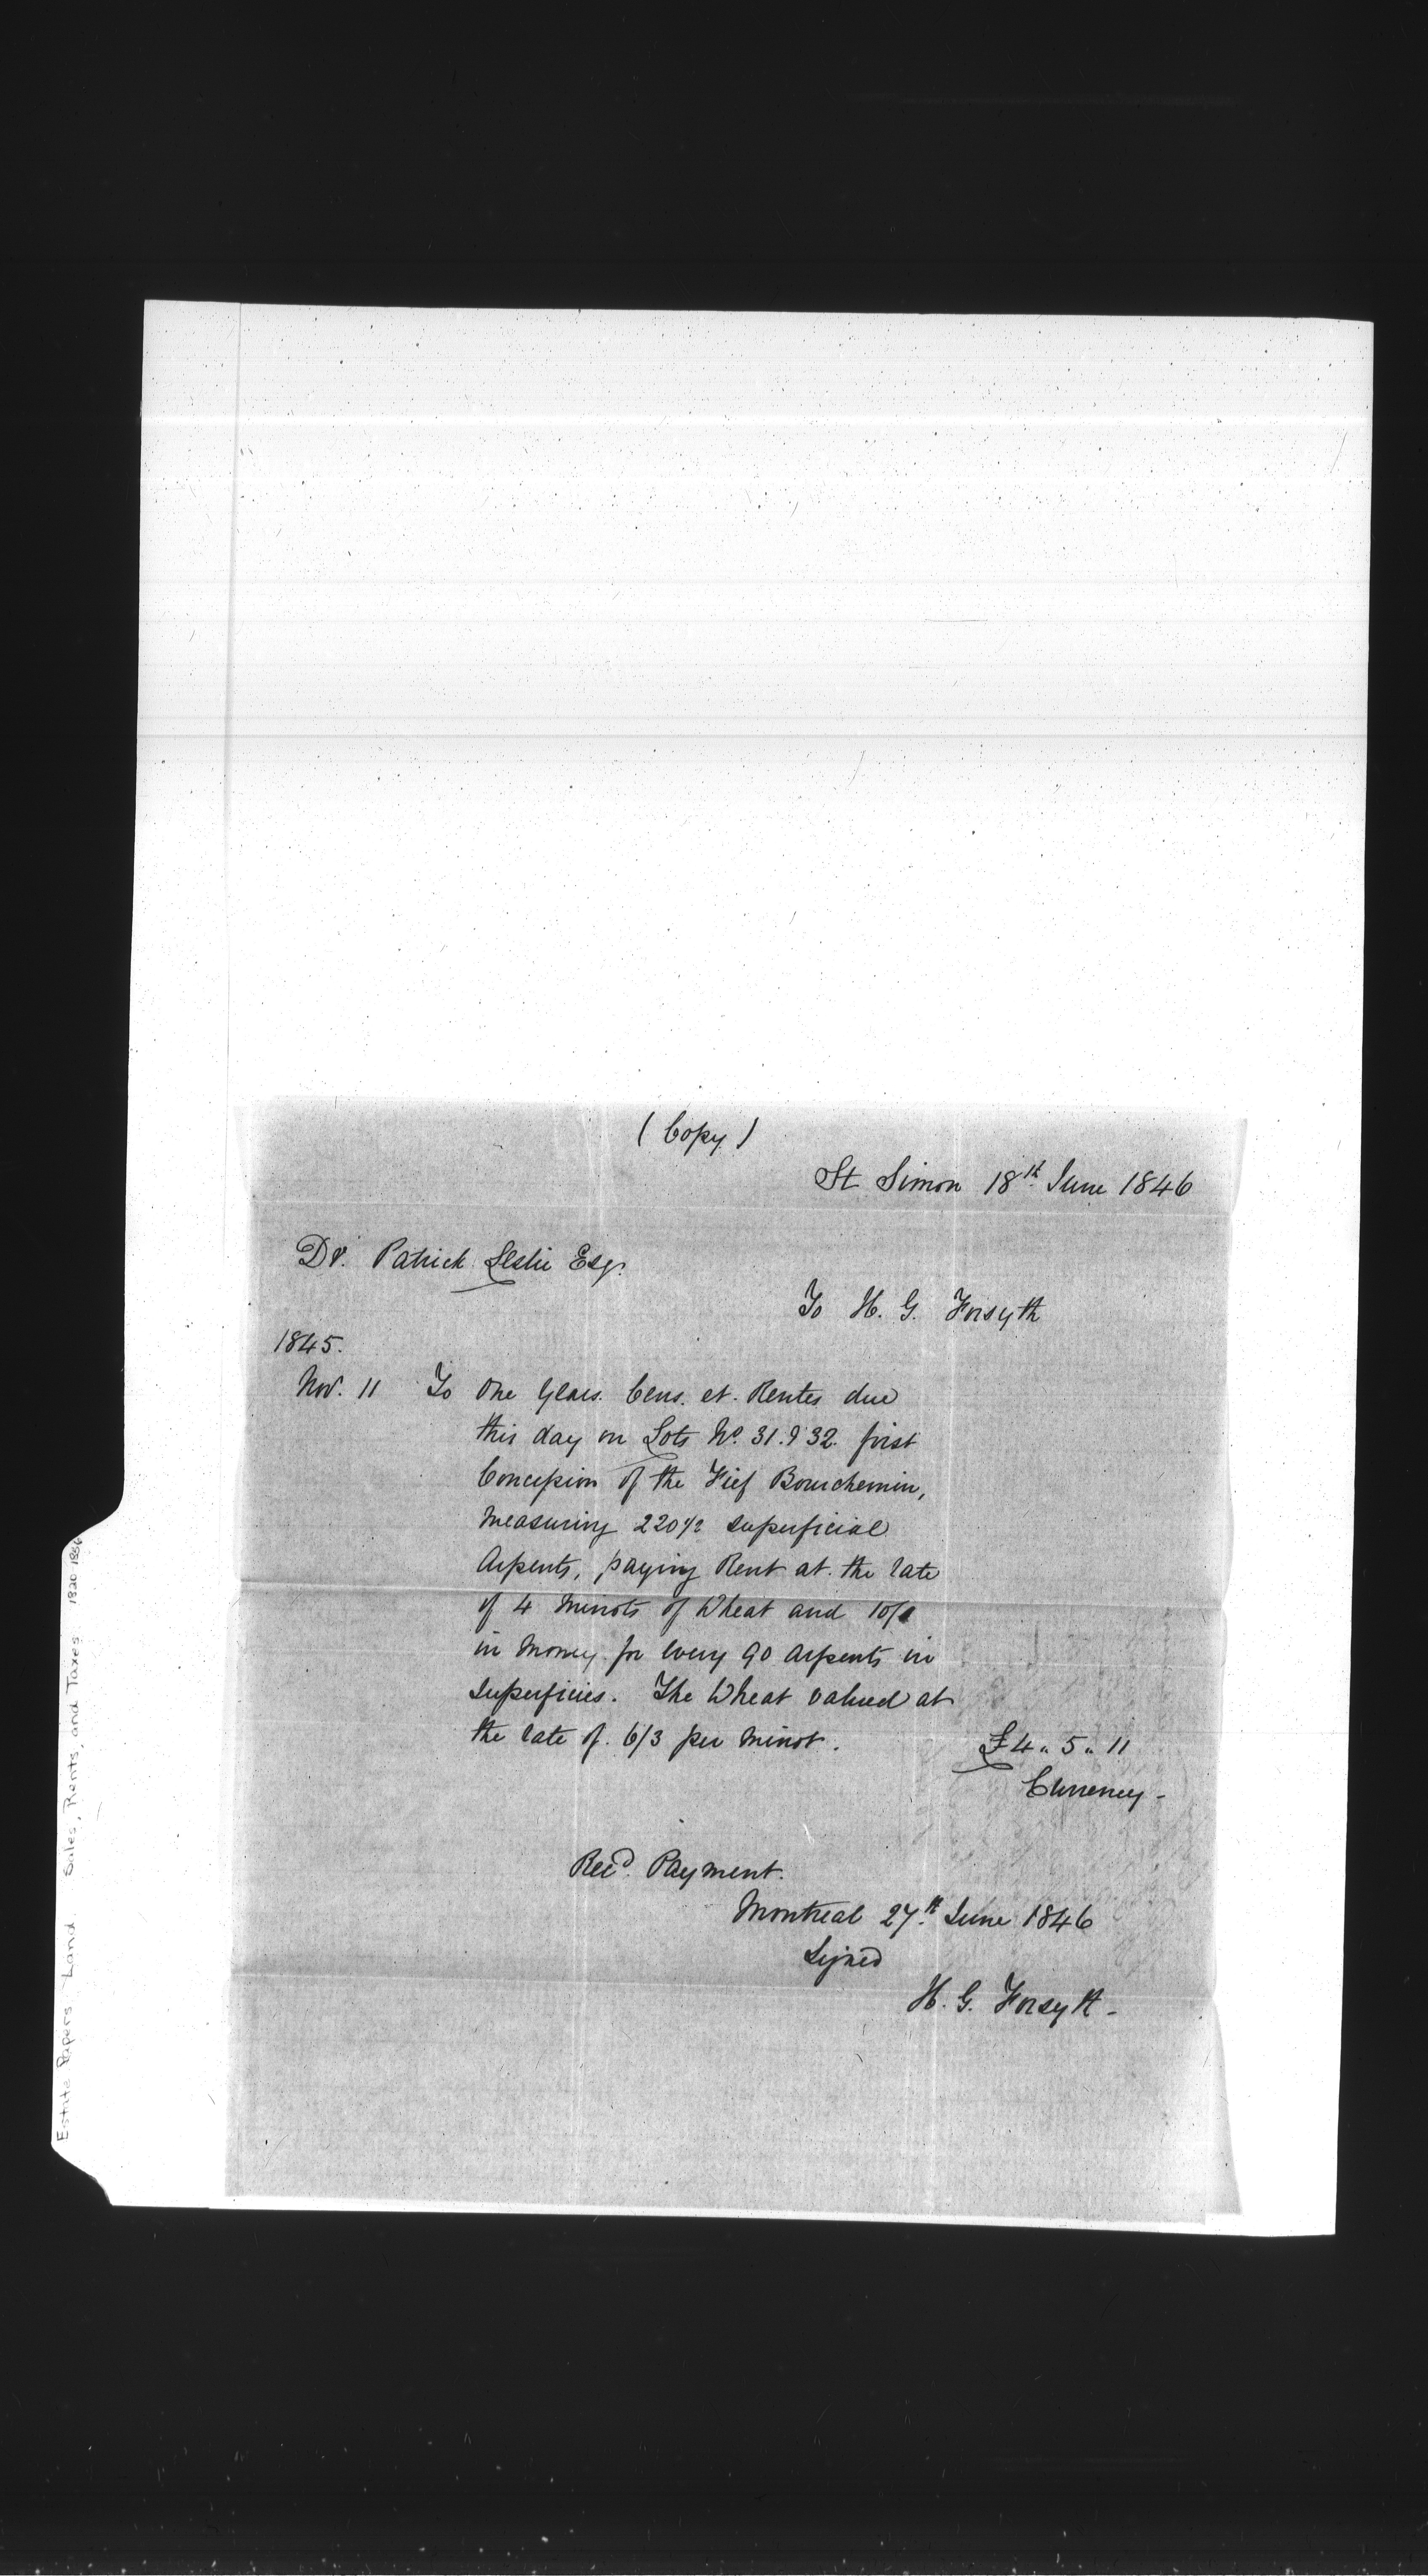 ( Copy )
St Simon 18th June 1846
Dr. Patrick Leslie Esqr.
To H. G. Forsyth
1845.
Nov. 11 To One Years. Cens. et. Rentes due
this day on Lots No. 31. & 32. first
Concession of the Fief Bourchemin,
measuring 220 1/2 superficial
Arpents, paying Rent at the rate
of 4 Minots of Wheat and 10/
in Money for every 90 Arpents in
superficies. The Wheat valued at
the rate of. 6/3 per minot.
£4 " 5 " 11
Currency -
Recd. Payment.
Montreal 27th June 1846
Signed
H. G. Forsyth -
Estate Papers - Land Sales, Rents, and Taxes 1820-1856